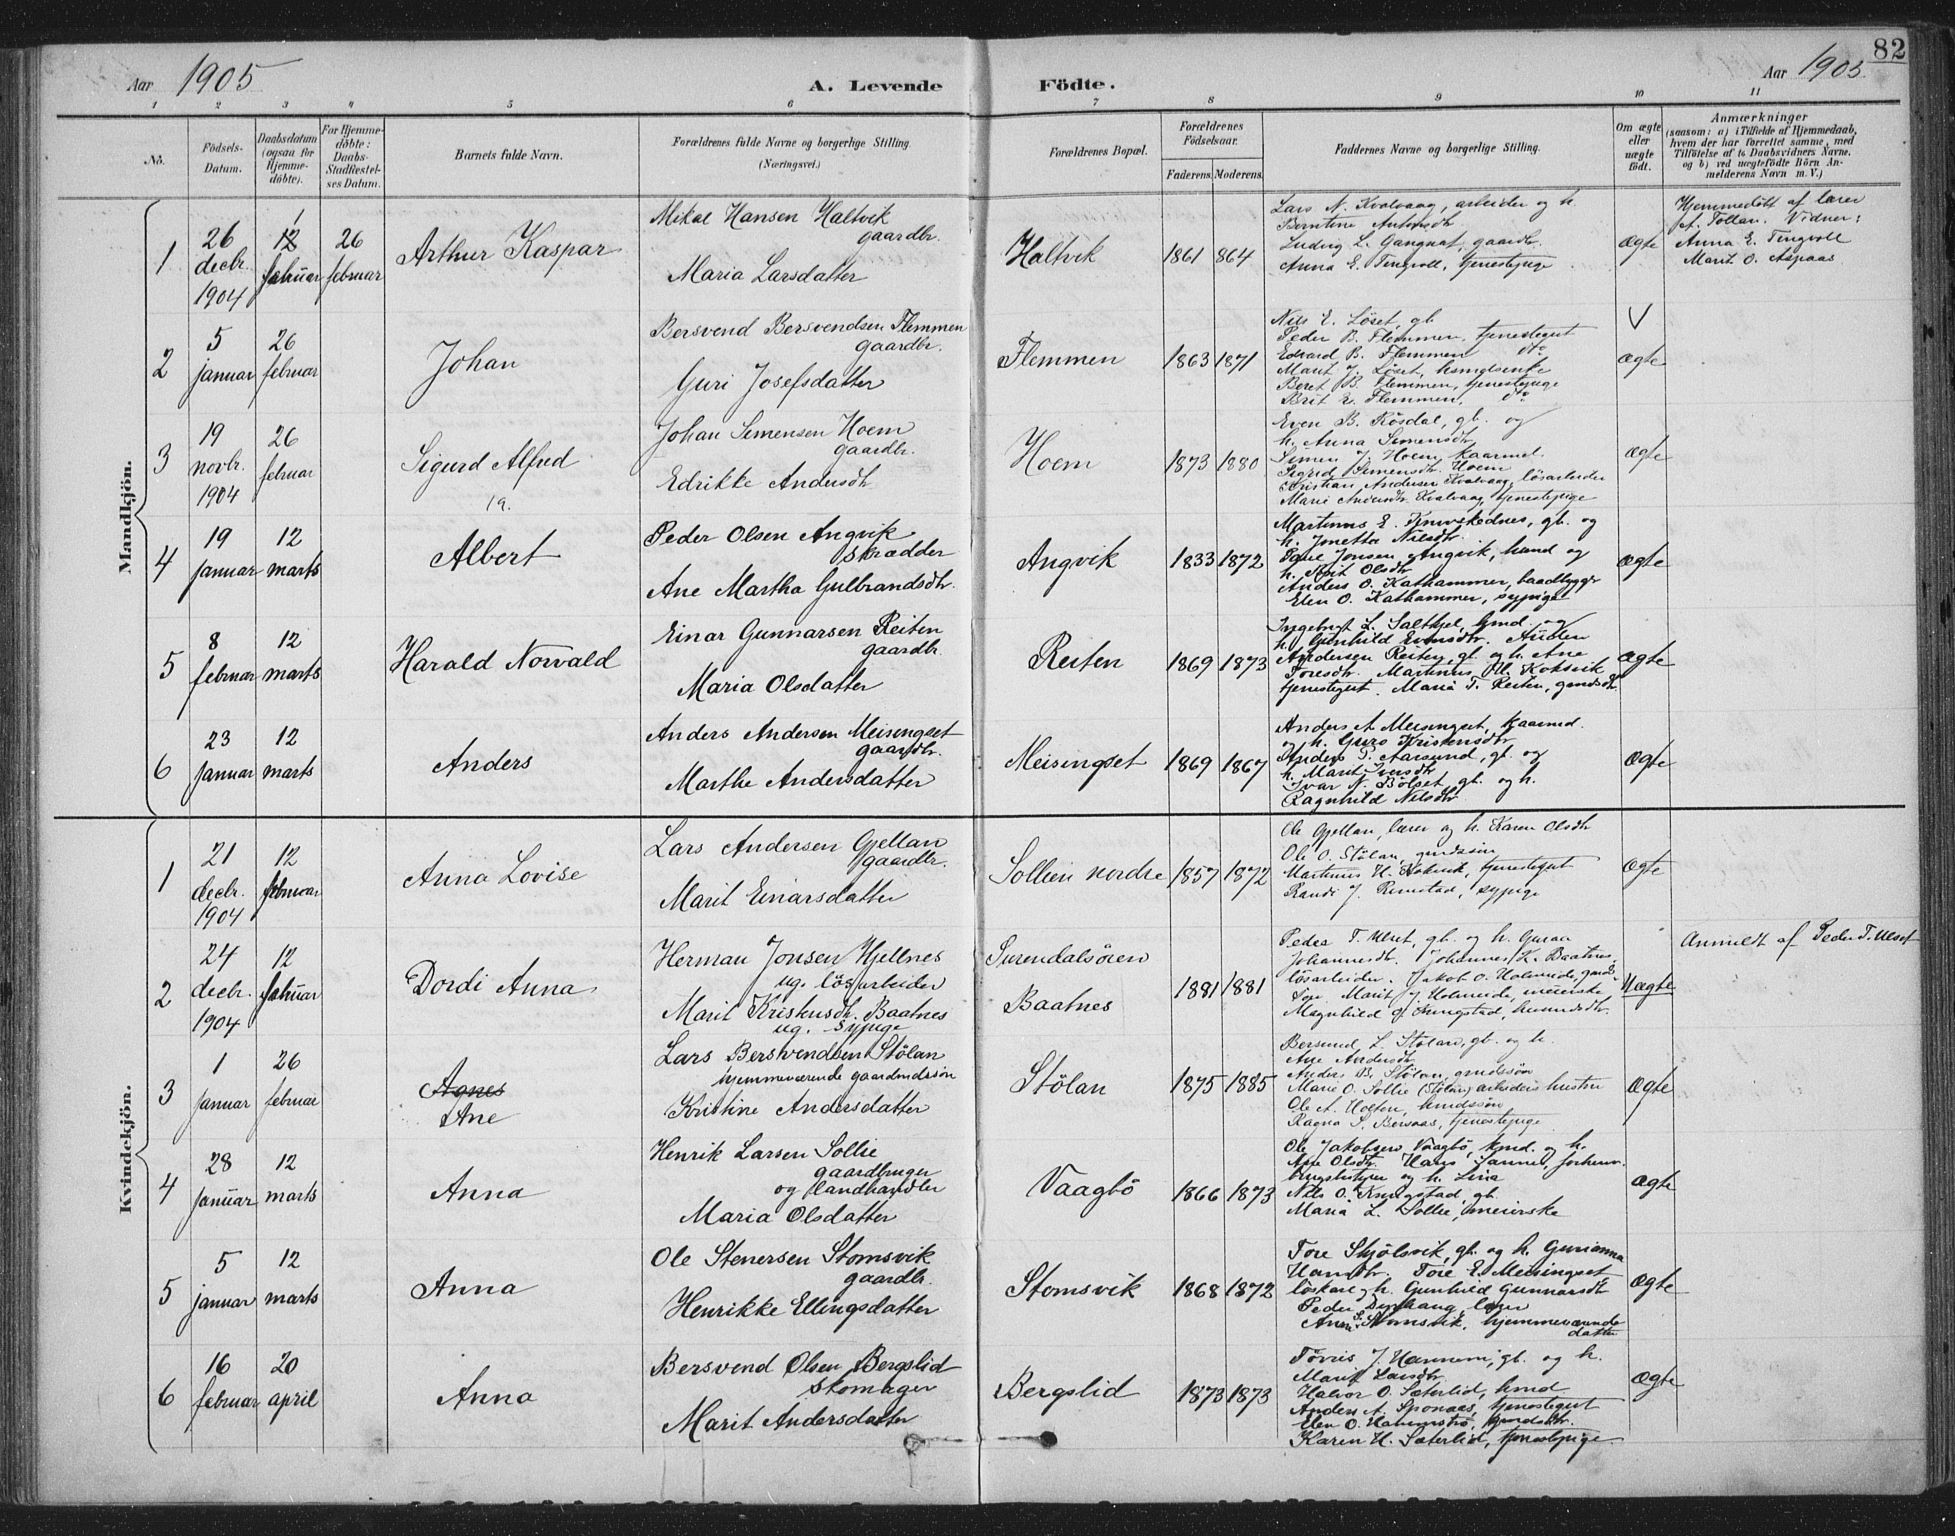 82
Aar 1905
A. Levende Födte.
Aar 1905
1 2 3 4 5 6 7 8 9 10 11
No.
Födsels-Datum.
Daabsdatum (ogsaa for Hjemme-döbte).
For Hjemme-döbte: Daabs-Stadfæstel-ses Datum.
Barnets fulde Navn.
Forældrenes fulde Navne og borgerlige Stilling
(Næringsvei.)
Forældrenes Bopæl.
Forældrenes Födselsaar.
Faderens. Moderens.
Faddernes Navne og borgerlige Stilling.
Om ægte eller uægte födt.
Anmærkninger
(saasom: a) i Tilfælde af Hjemmedaab,
hvem der har forrettet samme, med
Tilföielse af to Daabsvidners Navne,
og b) ved uægtefödte Börn An-
melderens Navn m. V.)
Mandkjön.
1
26 decbr. 1904
12 februar
26 februar
Arthur Kaspar
Mikal Hansen Haltvik
gaardbr.
Maria Larsdatter
Haltvik
1861 864
Lars N. Kvalvaag, arbeider og h.
Berntine Antonsdtr
Ludvig L. Gangnat, gaardbr.
Anna E. Tingvoll, tjenestepige
ægte
Hjemmedöbt af lærer
A. Tollan. Vidner:
Anna E. Tingvoll
Marit O. Aspaas
2
5 januar
26 februar
Johan
Bersvend Bersvendsen Flemmen
gaardbr.
Guri Josefsdatter
Flemmen
1863 1871
Nils E. Löset, gb.
Peder B. Flemmen, tjenestegut
Edvard B. Flemmen dto
Marit J. Löset, husmdsenke
Beret B. Flemmen, tjenestepige
Brit E. Flemmen. dto
V
ægte
3
19 novbr. 1904
26 februar
Sigurd Alfred
19.
Johan Simensen Hoem
gaardbr.
Edrikke Andersdtr
Hoem
1873 1880
Even B. Rösdal, gb. og
h. Anna Simensdtr
Simen J. Hoem, kaarmd.
Sigrid Simensdtr. Hoem
Kristian Andersen Kvalvaag, lösarbeider
Marie Andersdtr. Kvalvaag, tjenestepige
ægte
4
19 januar
12 marts
Albert
Peder Olsen Angvik
skrædder
Ane Martha Gulbrandsdtr.
Angvik
1833 1872
Martinus E. gb. og
h. Jonetta Nilsdtr
Jonsen Angvik, hmd og
h. Olsdtr
Anders O. Kathammer, baadbygger
Elen O. Kathammer, sypige
ægte
5
8 februar
12 marts
Harald Norvald
Einar Gunnarsen Reiten
gaardbr.
Maria Olsdatter
Reiten
1869 1873
Ingebrigt L. Saltkjel, hmd. og
h. Gunhild Evensdtr. Anders
Andersen Reiten, gb. og h. Ane
Toresdtr. Martinus H. Koksvik
tjenestegut. Maria T. Reiten, gmdsdtr.
ægte
6
23 januar
12 marts
Anders
Anders Andersen Meisingset
gaardbr.
Marthe Andersdatter
Meisingset
1869 1867
Anders A. Meisingset, kaarmd.
og h. Guro Kristensdtr
Anders P. Aarsund, gb. og
h. Marit Iversdtr
Ivar N. Bölset, gb. og h.
Ragnhild Nilsdtr
ægte
Kvindekjön.
1
21 decbr. 1904
12 februar
Anna Lovise
Lars Andersen Gjellan
gaardbr.
Marit Einarsdatter
Sollien nordre
1857 1872
Ole Gjellan, lærer og h. Karen Olsdtr
Ole O. Stölan, gmdssön
Martinus H. Koksvik, tjenestegut
Randi J. Rimstad, sypige
ægte
2
24 decbr. 1904
12 februar
Dordi Anna
Herman Jonsen Hjellnes
ug. lösarbeider
Marit Kristensdtr. Baatnes
ug. sypige
Surendalsören
Baatnes
1881 1881
Peder T. Ulset, gb. og h. Guroa
Johannesdtr. Johannes K. Baatnes,
lösarbeider. Jakob O. Holmeide, gmds-
sön. Marit J. Holmeide, meierske
Magnhild husmdsdtr.
Uægte
Anmeldt af Peder T. Ulset
3
1 januar
26 februar
Agnes
Ane
Lars Bersvendsen Stölan
hjemmeværende gaardmdssön
Kristine Andersdatter
Stölan
1875 1885
Bersvend L. Stölan, gb. og h.
Ane Andersdtr
Anders B. Stölan, gmdssön
Marie O. Sollie (Stölan) arbeiders hustru
Ole A. Holten, hmdssön
Ragna S. Bersaas, tjenestepige
ægte
4
28 januar
12 marts
Anna
Henrik Larsen Sollie
gaardbruger
og landhandler
Maria Olsdatter
Vaagbö
1866 1873
Ole Jakobsen Vaagbö, kmd. og h.
Ane Olsdtr. Hans Sannes, forhenv.
brugsbestyrer og h. Lina
Nils O. Knugstad, gb.
Maria L. Sollie, meierske
ægte
5
5 januar
12 marts
Anna
Ole Stenersen Stomsvik
gaardbr.
Henrikke Ellingsdatter
Stomsvik
1868 1872
Tore Skjölsvik, gb. og h. Gurianna
Hansdtr. Tore E. Meisingset
löskar og h. Gunhild Gunnarsdtr
Peder Dyrhaug, lærer
Anne S. Stomsvik, hjemmeværende
datter
ægte
6
16 februar
20 april
Anna
Bersvend Olsen Bergslid
skomager
Marit Andersdatter
Bergslid
1873 1873
J. Hannem, gb. og h.
Marit Larsdtr
Halvor O. Sæterlid, hmd
Anders A. Sponaas, tjenestegut
Elen O. gmdsdtr.
Karen H. Sæterlid, tjenestepige
ægte